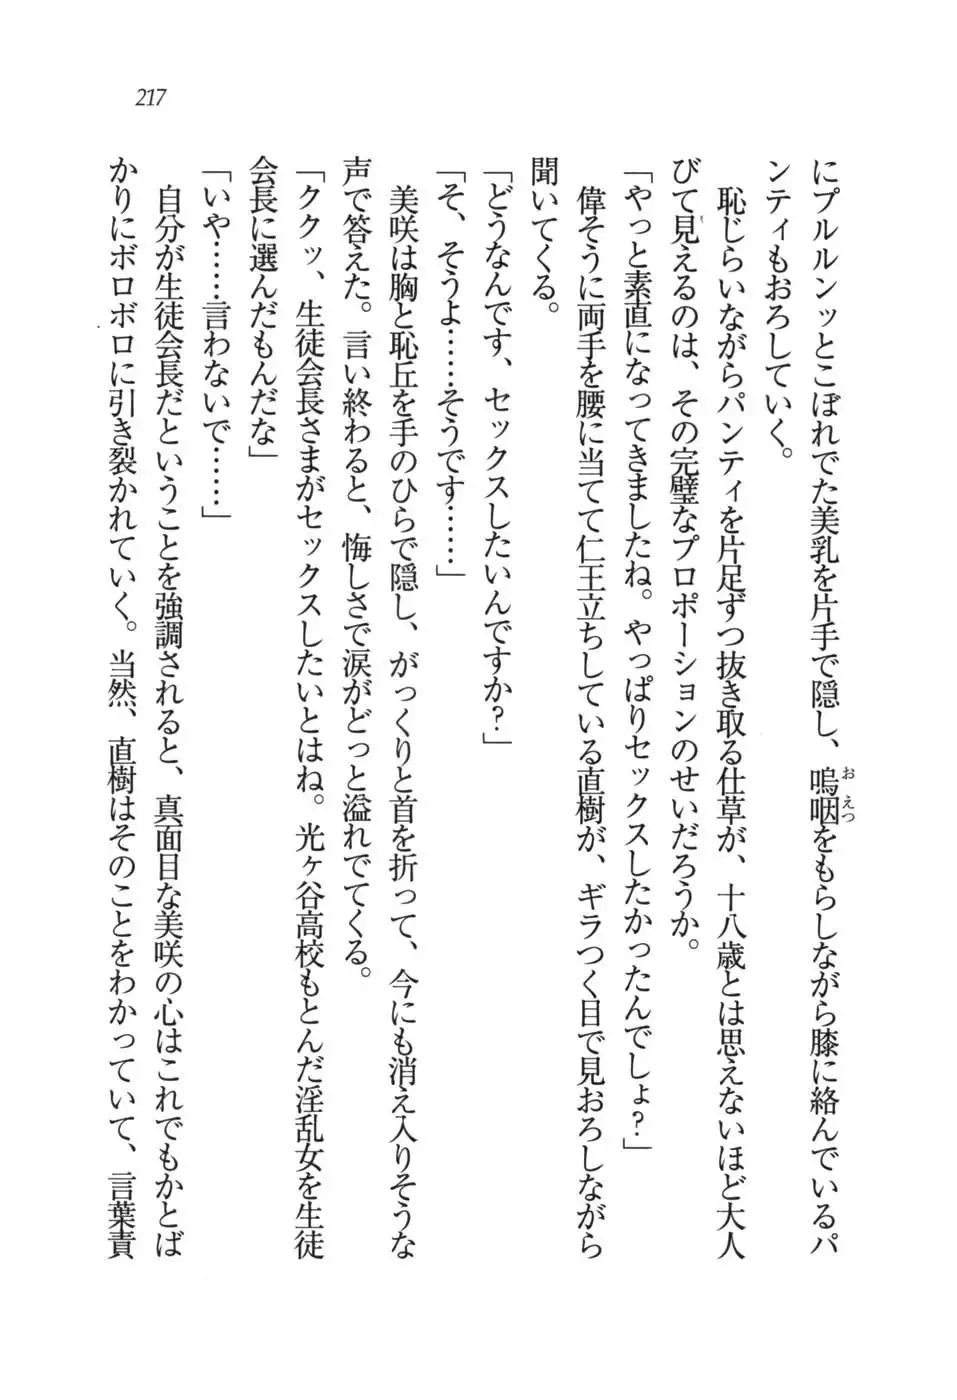 217
にプルルンッとこぼれでた美乳を片手で隠し、嗚咽をもらしながら膝に絡んでいるパ
おえつ
ンティもおろしていく。
恥じらいながらパンティを片足ずつ抜き取る仕草が、十八歳とは思えないほど大人
びて見えるのは、その完璧なプロポーションのせいだろうか。
「やっと素直になってきましたね。やっぱりセックスしたかったんでしょ？」
偉そうに両手を腰に当てて仁王立ちしている直樹が、ギラつく目で見おろしながら
聞いてくる。
「どうなんです、セックスしたいんですか？」
「そ、そうよ……そうです……」
美咲は胸と恥丘を手のひらで隠し、がっくりと首を折って、今にも消え入りそうな
声で答えた。言い終わると、悔しさで涙がどっと溢れでてくる。
「ククッ、生徒会長さまがセックスしたいとはね。光ヶ谷高校もとんだ淫乱女を生徒
会長に選んだもんだな」
「いや……言わないで……」
自分が生徒会長だということを強調されると、真面目な美咲の心はこれでもかとば
かりにボロボロに引き裂かれていく。当然、直樹はそのことをわかっていて、言葉責